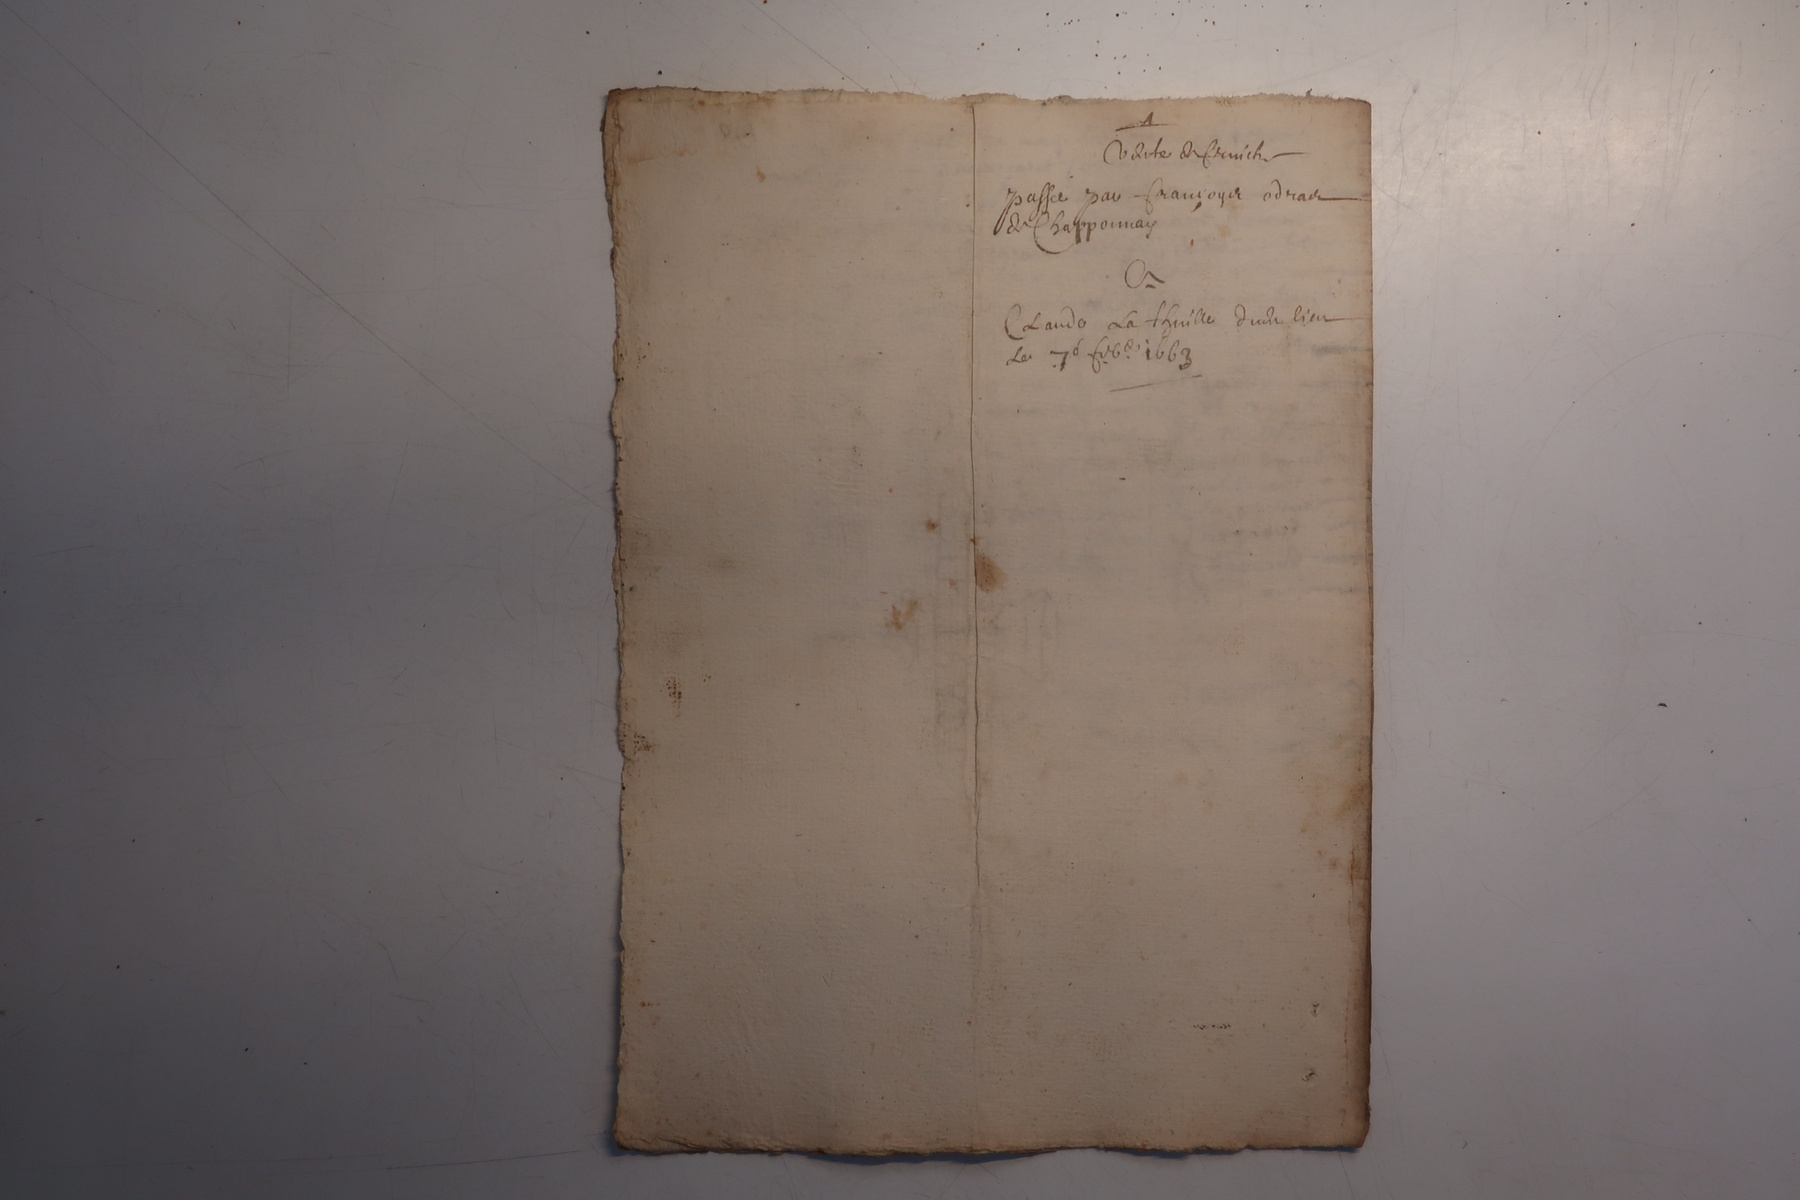 A
Vente de
passée par Françoyse odrae
de Chapponnay
A
Claude La thuille dudit lieu
Le 7e 1663